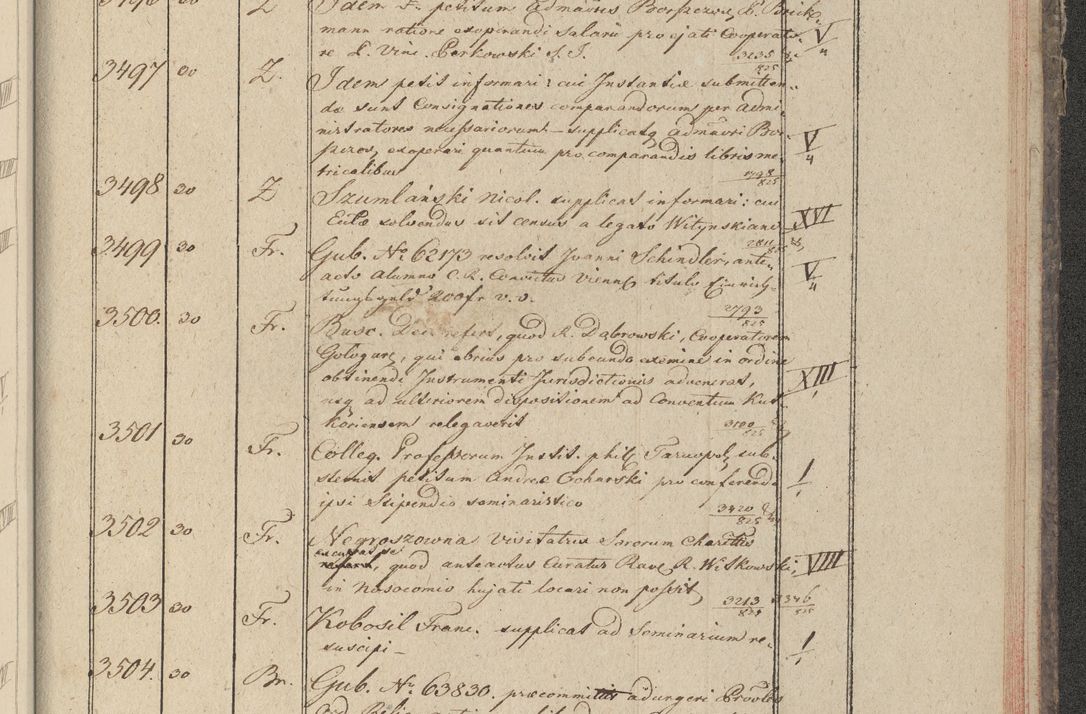 Idem petitum
mann ratione exoperandi Salarii pro ejati Cooperato- V/4
re L. Vinc. Perkowski S. J. 3235/825
3497 30 Z. Idem petit informari: cui Instantiæ submitten
dæ sunt Consignationes comparandorum per admi-
nistratores necessariorum – supplicatq admāvri Bor V/4
exoperari quantum pro comparandis libris me-
tricalibus 825
3498 30 Z Szumlański Nicol. supplicat informari: cui
solvendus sit census a legato Witynskiano XVI
3499 30 Fr. Gub. No 62173 resolvit Joanni Schindler, ante-
acto Alumno C. R. Convictus Viennę titulo Einrich- V/4
tungsgeld 200 fr v. v. 2793/825
3500. 30 Fr. Busc. Dec. refert, quod R. Dąbrowski, Cooperatorem
Gologure, qui ebrius pro subeundo examine in ordine
obtinendi Instrumenti Jurisdictionis advenerat, XIII/1
usq ad ulteriorem dispositionem ad Conventum Kut
koriensem relegaverit 3100/825
3501 30 Fr. Colleg. Professorum Instit. phil. Tarnopol, sub-
sternit petitum Andreæ Ochurski pro conferendo 1/1
ipsi Stipendio seminaristico 3420/825
3502 30 Fr. Negroszowna Visitatrix Sororum Charitis
excusat se
quod anteactus Curatus Ravę R. Witkowski, VIII
in Nosocomio hujati locari non possit, 3213/825 1346/825
3503 30 Fr. Kobosil Franc. supplicat ad Seminarium re- 1/1
suscipi –
3504. 30 Br. Gub. No 63830. præcommittit adurgeri